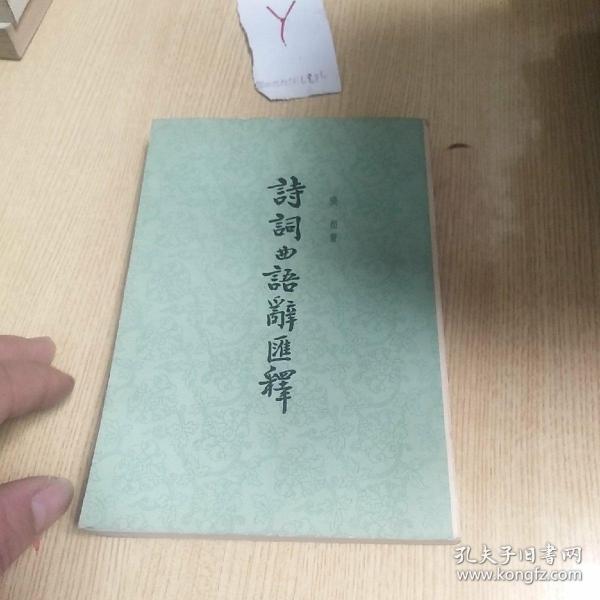 Y
詩詞曲語辭匯釋
張相著
孔夫子旧书网
www.kongfz.com